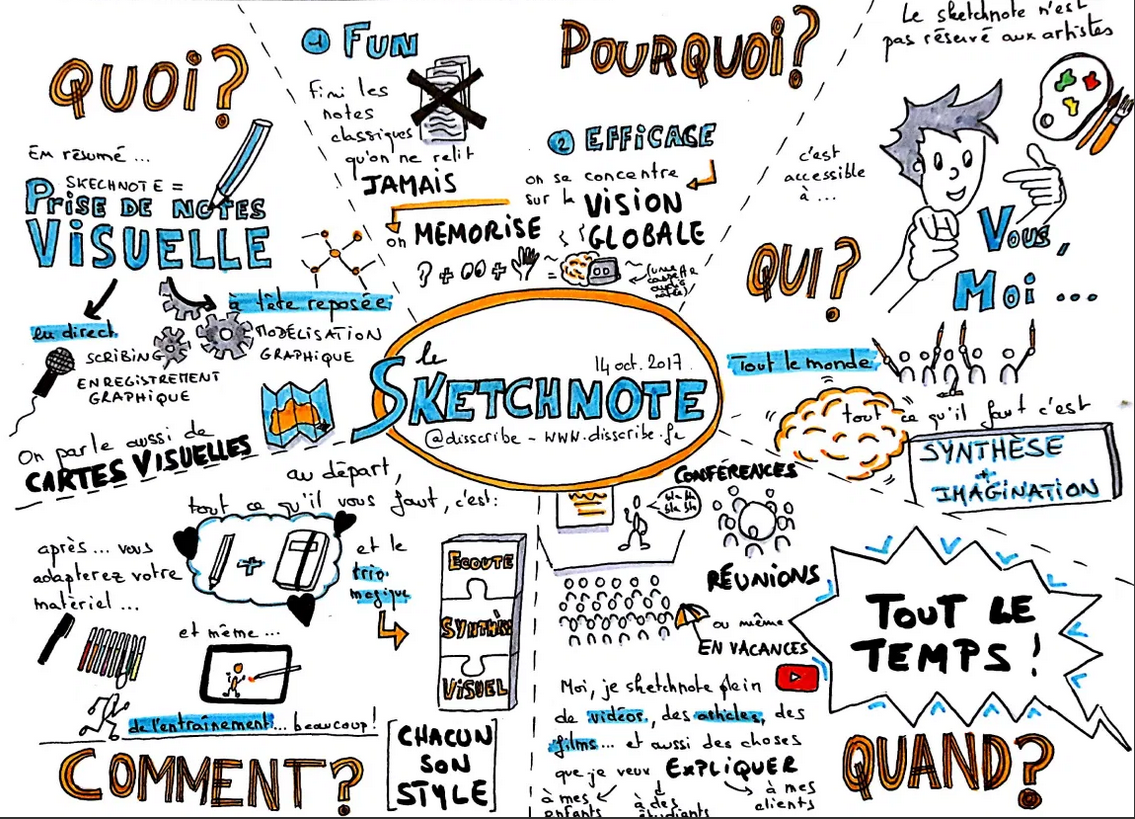 QUOI?
En résumé ...
SKECHNOTE =
PRISE DE NOTES
VISUELLE
en direct
SCRIBING
ENREGISTREMENT
GRAPHIQUE
à tête reposée
MODÉLISATION
GRAPHIQUE
On parle aussi de
CARTES VISUELLES
POURQUOI?
1 FUN
fini les
notes
classiques
qu'on ne relit
JAMAIS
2 EFFICACE
on se concentre
sur la VISION
GLOBALE
on MEMORISE
? + + =
le
14 oct. 2017
SKETCHNOTE
@disscribe - www.disscribe.fr
Le sketchnote n'est
pas réservé aux artistes
c'est
accessible
à ...
QUI?
Vous,
Moi ...
Tout le monde
tout ce qu'il faut c'est
SYNTHÈSE
+
IMAGINATION
au départ,
tout ce qu'il vous faut, c'est:
+
et le
trio
magique
ECOUTE
SYNTHÈ
VISUEL
après ... vous
adapterez votre
matériel ...
et même ...
de l'entraînement ... beaucoup!
COMMENT?
[CHACUN
SON
STYLE]
CONFÉRENCES
bla bla
bla bla
RÉUNIONS
ou même
EN VACANCES
Moi, je sketchnote plein
de vidéos, des articles, des
films ... et aussi des choses
que je veux EXPLIQUER
à mes
enfants
à des
étudiants
à mes
clients
TOUT LE
TEMPS!
QUAND?